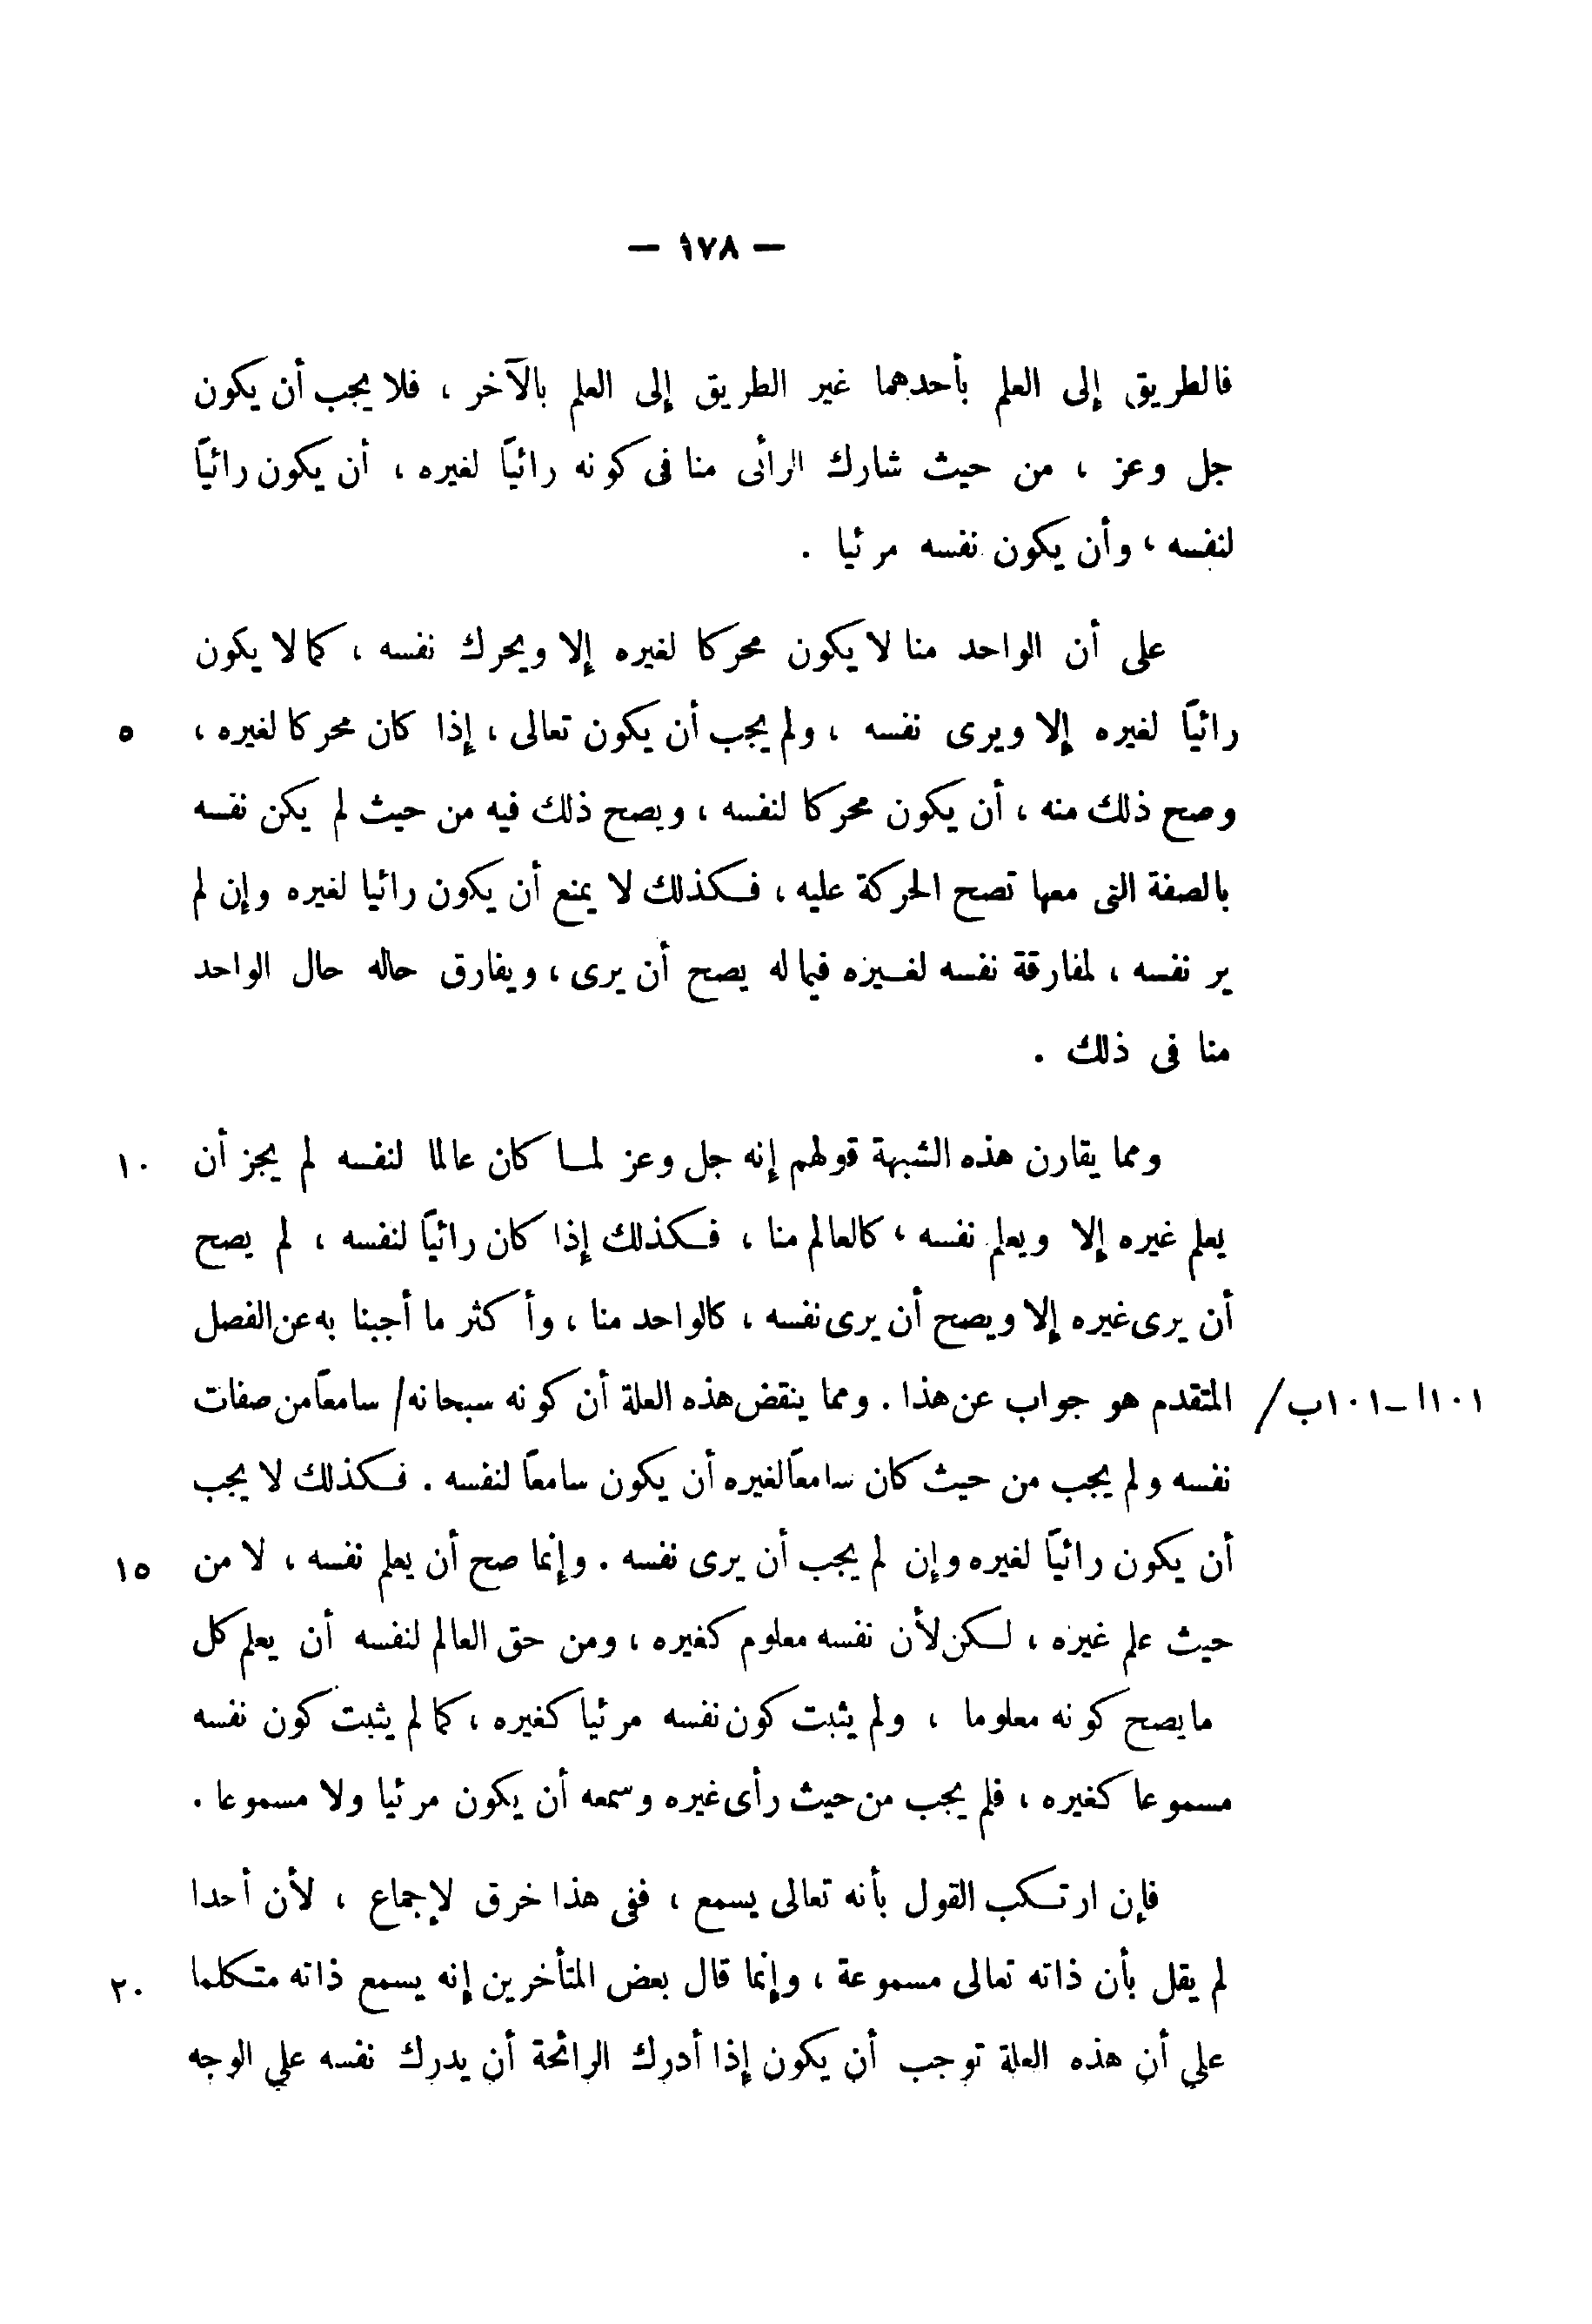 — ١٧٨ —
فالطريق إلى العلم بأحدهما غير الطريق إلى العلم بالآخر ، فلا يجب أن يكون
جل وعز ، من حيث شارك الرأئى منا فى كونه رائياً لغيره ، أن يكون رائياً
لنفسه ، وأن يكون نفسه مرئيا .
على أن الواحد منا لا يكون محركا لغيره إلا ويحرك نفسه ، كما لا يكون
رائياً لغيره إلا ويرى نفسه ، ولم يجب أن يكون تعالى ، إذا كان محركا لغيره ، ٥
وصح ذلك منه ، أن يكون محركا لنفسه ، ويصح ذلك فيه من حيث لم يكن نفسه
بالصفة التى معها تصح الحركة عليه ، فكذلك لا يمنع أن يكون رائيا لغيره وإن لم
ير نفسه ، لمفارقة نفسه لغيره فيما له يصح أن يرى ، ويفارق حاله حال الواحد
منا فى ذلك .
ومما يقارن هذه الشبهة قولهم إنه جل وعز لما كان عالما لنفسه لم يجز أن ١٠
يعلم غيره إلا ويعلم نفسه ، كالعالم منا ، فكذلك إذا كان رائياً لنفسه ، لم يصح
أن يرى غيره إلا ويصح أن يرى نفسه ، كالواحد منا ، وأكثر ما أجبنا به عن الفصل
١٠١ا ـ ١٠١ب / المتقدم هو جواب عن هذا . ومما ينقض هذه العلة أن كونه سبحانه/ سامعاً من صفات
نفسه ولم يجب من حيث كان سامعاً لغيره أن يكون سامعاً لنفسه . فكذلك لا يجب
أن يكون رائياً لغيره وإن لم يجب أن يرى نفسه . وإنما صح أن يعلم نفسه ، لا من ١٥
حيث علم غيره ، لكن لأن نفسه معلوم كغيره ، ومن حق العالم لنفسه أن يعلم كل
مايصح كونه معلوما ، ولم يثبت كون نفسه مرئيا كغيره ، كما لم يثبت كون نفسه
مسموعا كغيره ، فلم يجب من حيث رأى غيره وسمعه أن يكون مرئيا ولا مسموعا .
فإن ارتكب القول بأنه تعالى يسمع ، ففى هذا خرق لإجماع ، لأن أحدا
لم يقل بأن ذاته تعالى مسموعة ، وإنما قال بعض المتأخرين إنه يسمع ذاته متكلما ٢٠
على أن هذه العلة توجب أن يكون إذا أدرك الرائحة أن يدرك نفسه على الوجه